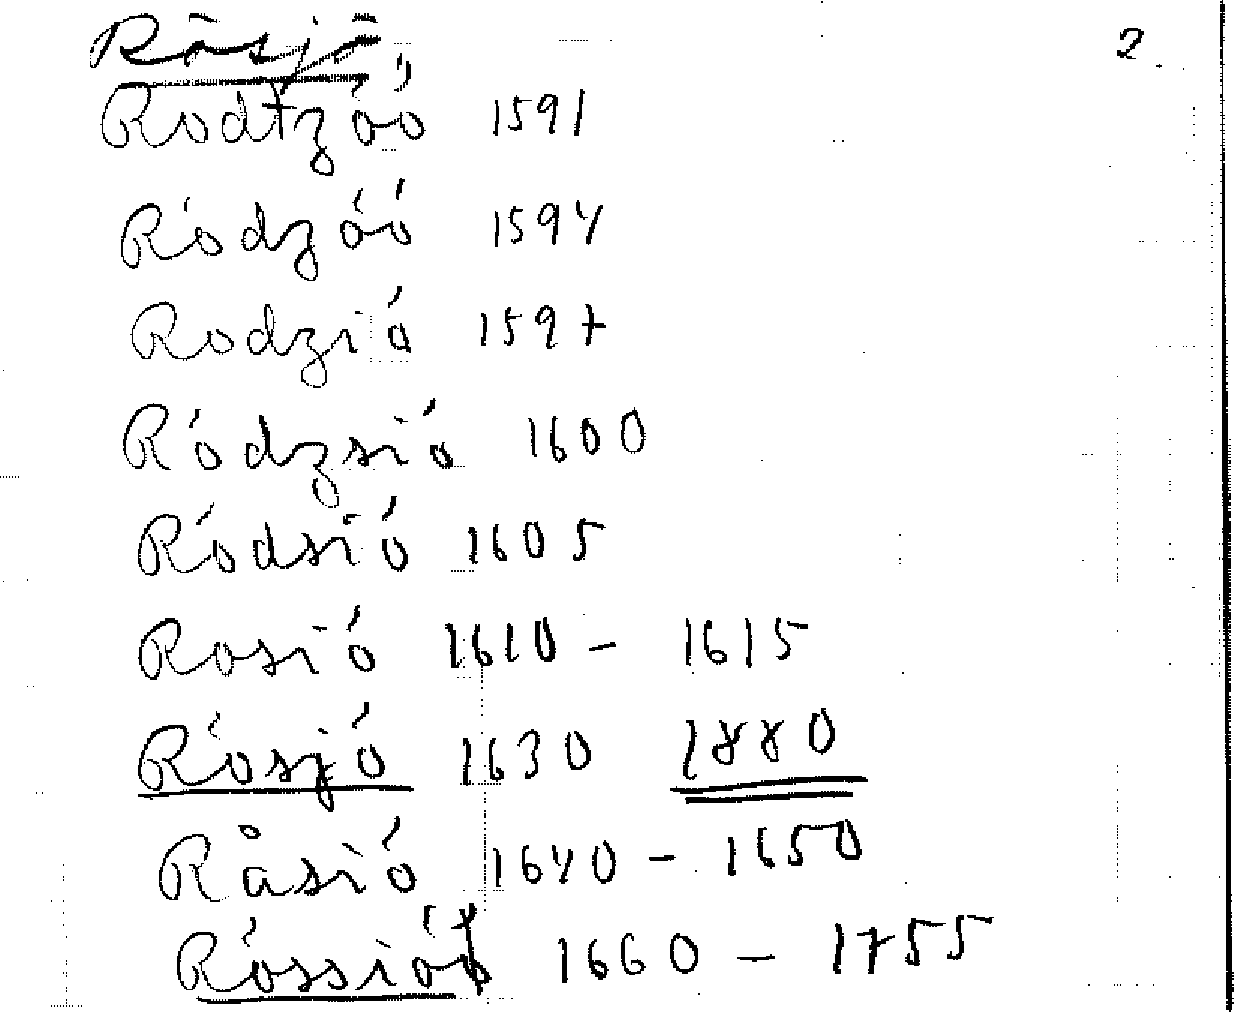 Råsjö 2
Rodtzóó 1591
Ródzóó 1594
Rodzió 1597
Ródzsió 1600
Ródsió 1605
Rosió 1610 - 1615
Rósjó 1630 1880
Råsió 1640 - 1650
Róssió 1660 - 1755